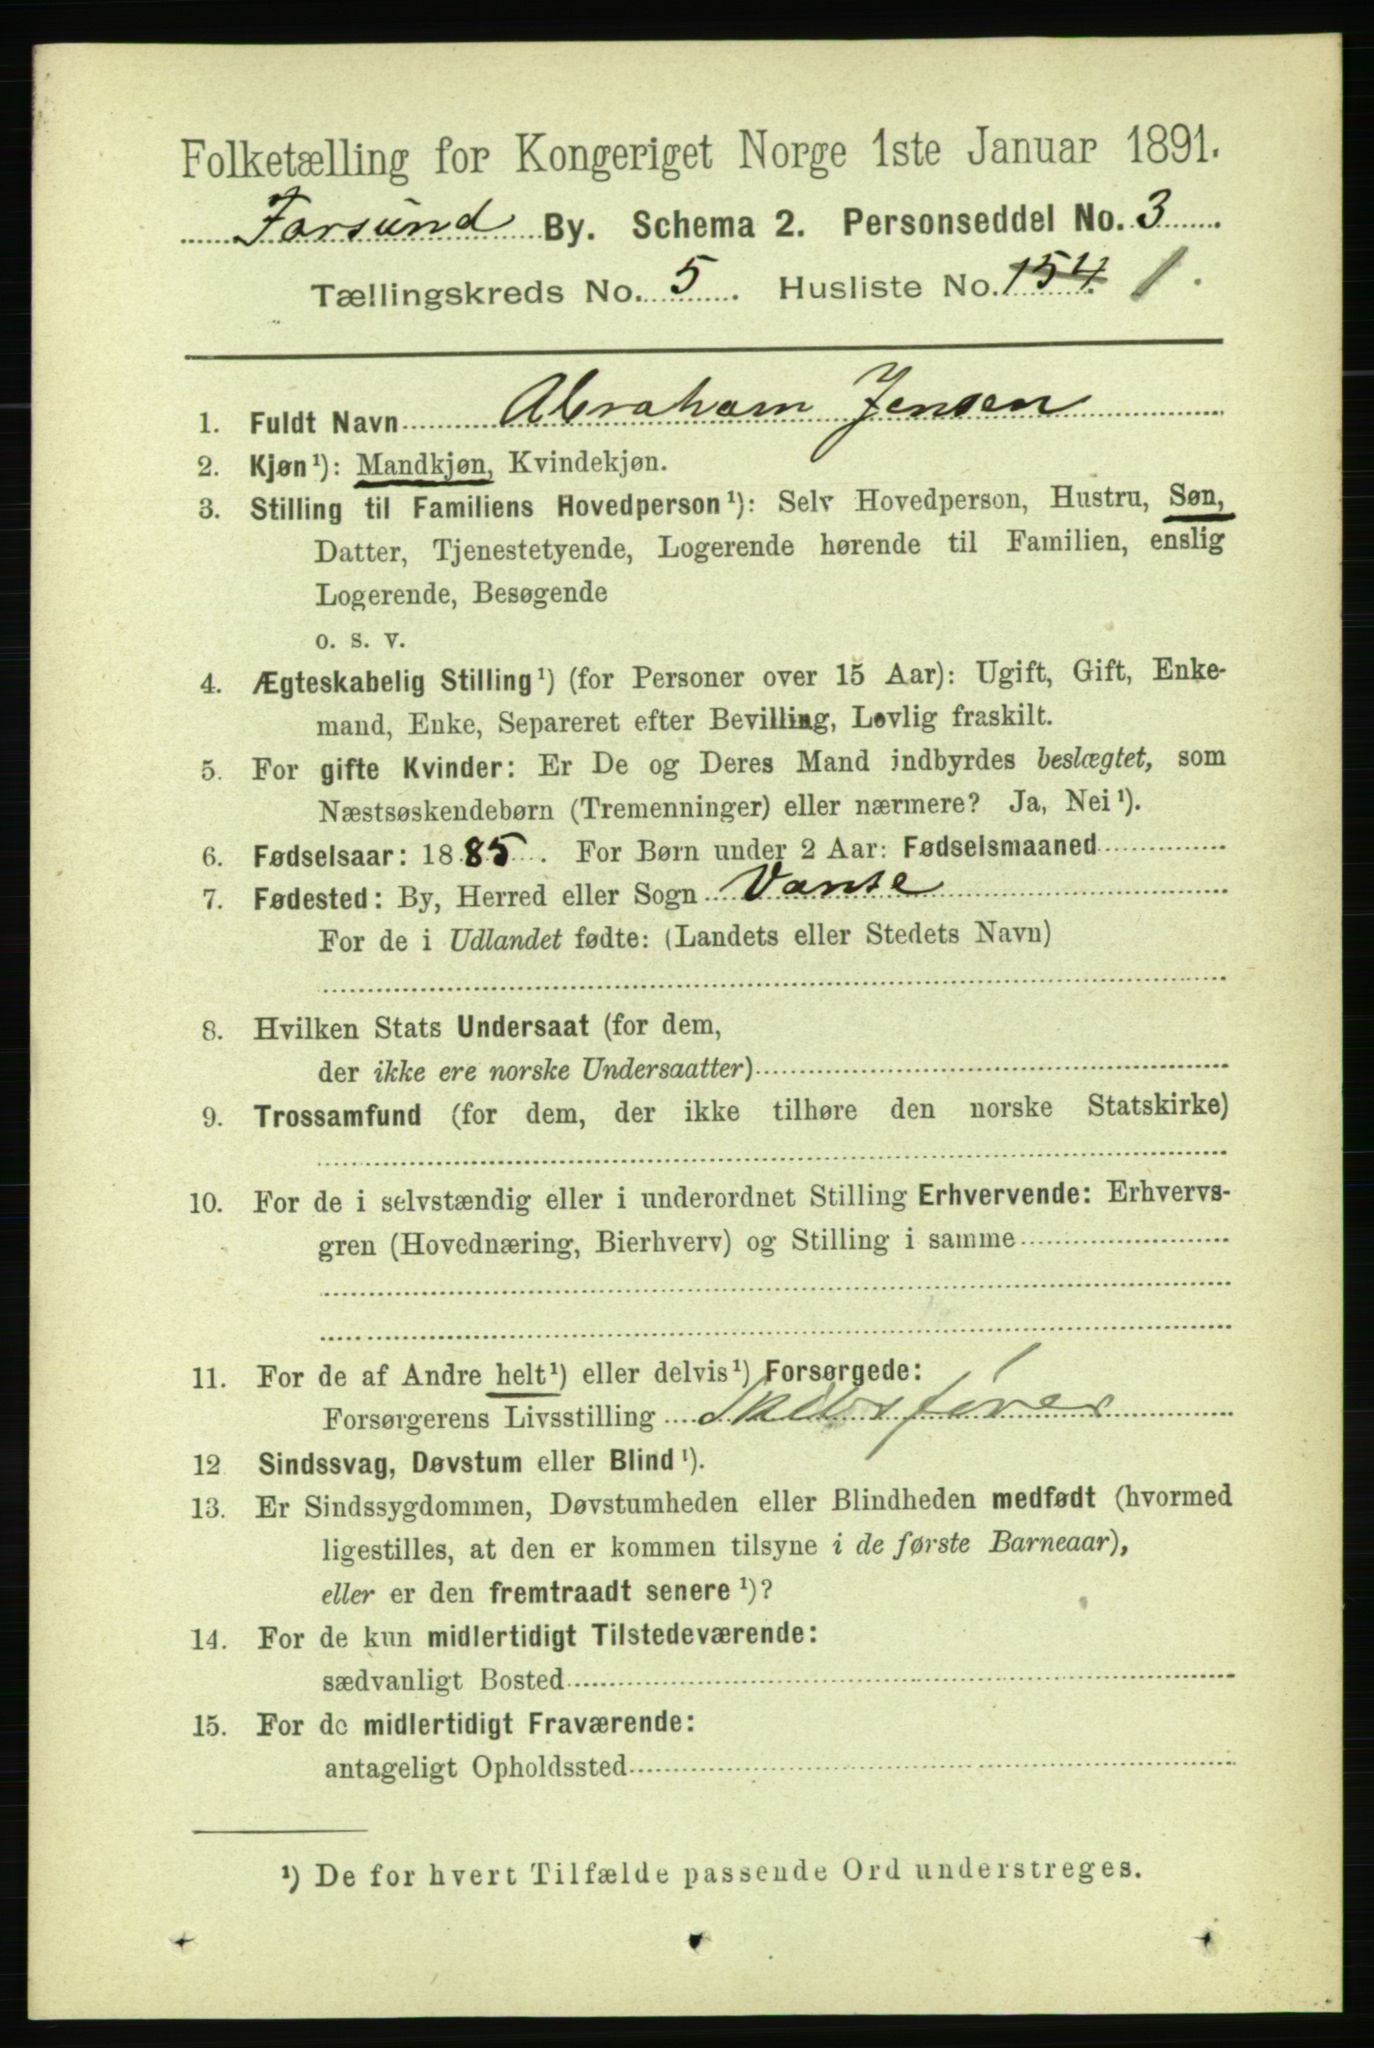 Folketælling for Kongeriget Norge 1ste Januar 1891.
Farsund By. Schema 2. Personseddel No. 3
Tællingskreds No. 5. Husliste No. 154 1.
1. Fuldt Navn Abraham Jensen
2. Kjøn¹): Mandkjøn, Kvindekjøn.
3. Stilling til Familiens Hovedperson¹): Selv Hovedperson, Hustru, Søn,
Datter, Tjenestetyende, Logerende hørende til Familien, enslig
Logerende, Besøgende
o. s. v.
4. Ægteskabelig Stilling¹) (for Personer over 15 Aar): Ugift, Gift, Enke-
mand, Enke, Separeret efter Bevilling, Lovlig fraskilt.
5. For gifte Kvinder: Er De og Deres Mand indbyrdes beslægtet, som
Næstsøskendebørn (Tremenninger) eller nærmere? Ja, Nei¹).
6. Fødselsaar: 1885. For Børn under 2 Aar: Fødselsmaaned
7. Fødested: By, Herred eller Sogn Vanse
For de i Udlandet fødte: (Landets eller Stedets Navn)
8. Hvilken Stats Undersaat (for dem,
der ikke ere norske Undersaatter)
9. Trossamfund (for dem, der ikke tilhøre den norske Statskirke)
10. For de i selvstændig eller i underordnet Stilling Erhvervende: Erhvervs-
gren (Hovednæring, Bierhverv) og Stilling i samme
11. For de af Andre helt¹) eller delvis¹) Forsørgede:
Forsørgerens Livsstilling Skibsfører
12 Sindssvag, Døvstum eller Blind¹).
13. Er Sindssygdommen, Døvstumheden eller Blindheden medfødt (hvormed
ligestilles, at den er kommen tilsyne i de første Barneaar),
eller er den fremtraadt senere¹)?
14. For de kun midlertidigt Tilstedeværende:
sædvanligt Bosted
15. For de midlertidigt Fraværende:
antageligt Opholdssted
¹) De for hvert Tilfælde passende Ord understreges.